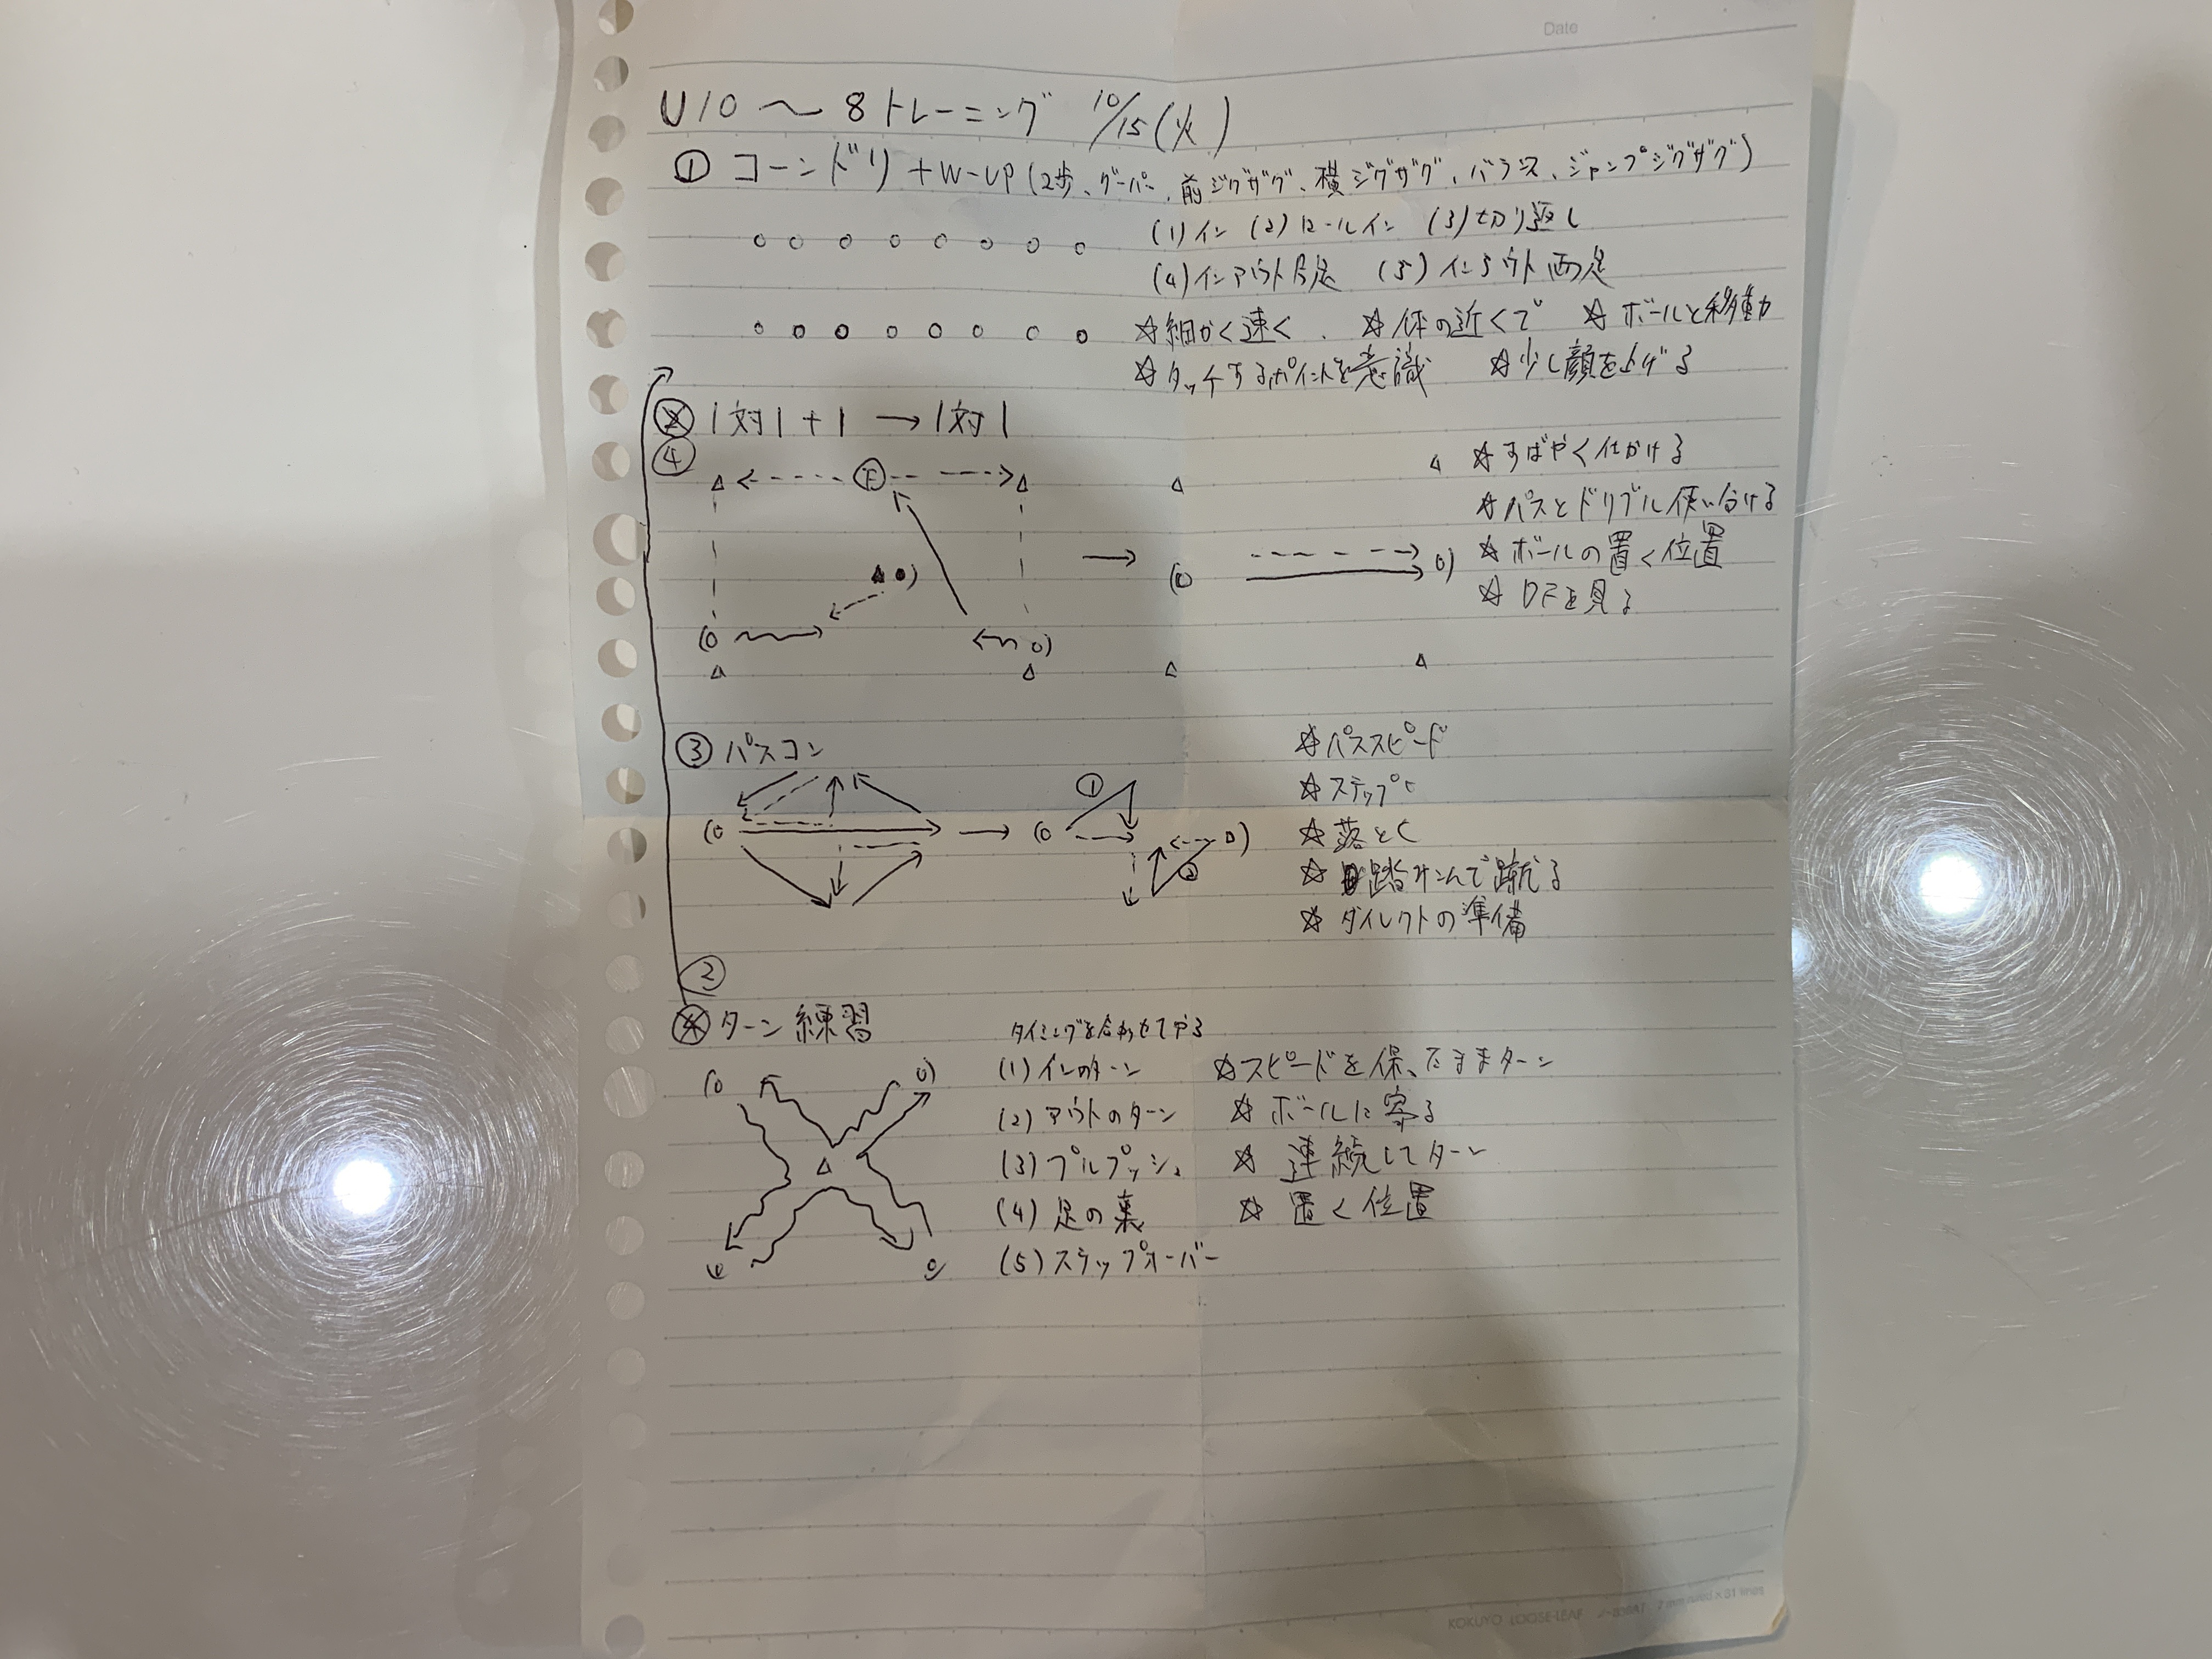 Date
U10 〜 8 トレーニング 10/15(火)
① コーンドリ + W-UP (2歩、グーパー、前ジグザグ、横ジグザグ、バランス、ジャンプジグザグ)
(1)イン (2)ロールイン (3)切り返し
(4)インアウト片足 (5)インアウト両足
☆細かく速く、 ☆体の近くで ☆ボールと移動
☆タッチするポイントを意識 ☆少し顔を上げる
② 1対1+1 → 1対1
④
☆すばやく仕かける
☆パスとドリブル使い分ける
☆ボールの置く位置
☆DFを見る
③ パスコン
☆パススピード
☆ステップ
☆落とし
☆踏みこんで蹴る
☆ダイレクトの準備
②
④ ターン練習 タイミングを合わせてやる
(1)インのターン ☆スピードを保ったままターン
(2)アウトのターン ☆ボールに寄る
(3)プルプッシュ ☆連続してターン
(4)足の裏 ☆置く位置
(5)ステップオーバー
KOKUYO LOOSE-LEAF